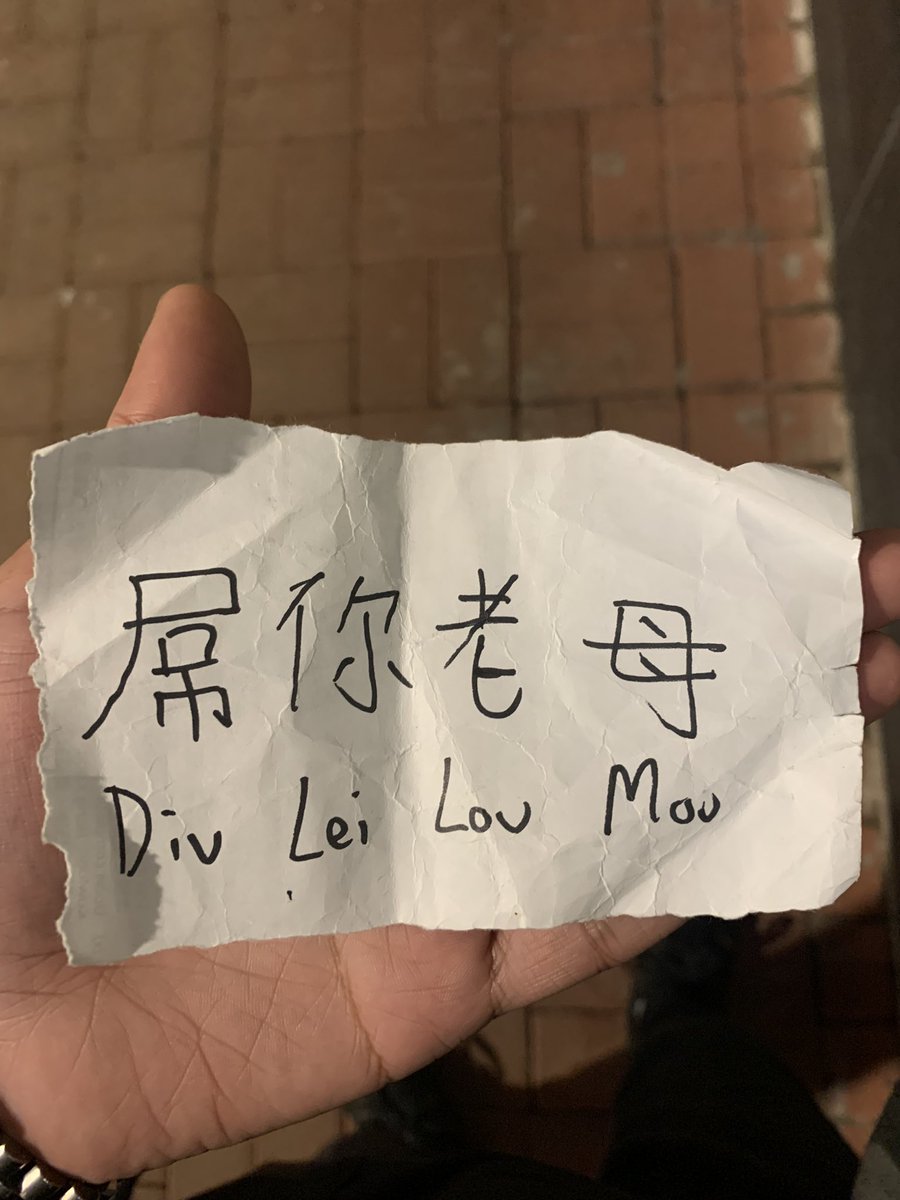 屌你老母
Diu Lei Lou Mou